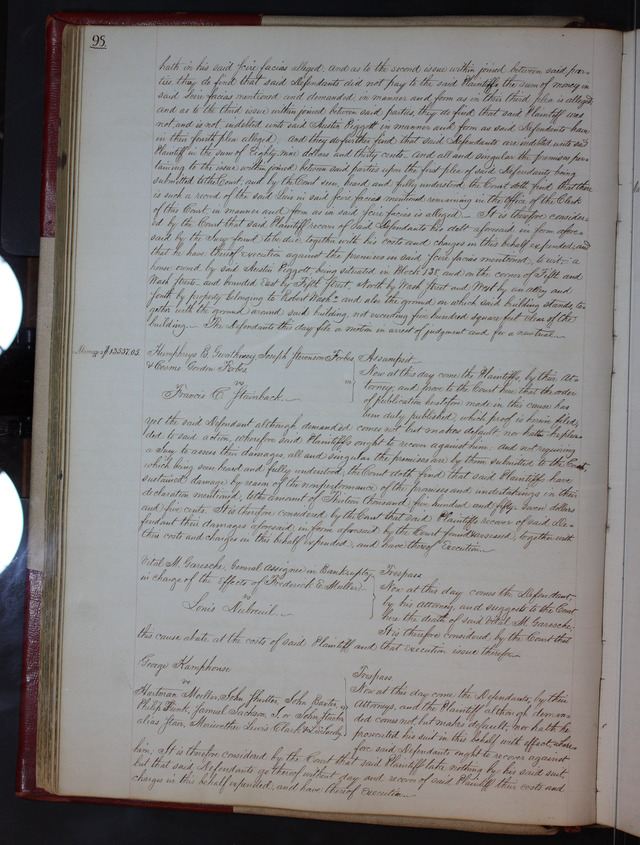 95
hath in his said scire facias alleged; and as to the second issue within joined between said par-
ties they do find that said defendants did not pay to the said Plaintiffs the sum of money in
said scire facias mentioned and demanded, in manner and form as in their third plea is alleged
and as to the third issue within joined between said parties, they do find that said Plaintiff was
not and is not indebted unto said Austin Piggott in manner and form as said Defendants have
in their fourth plea alleged. And they do further find that said Defendants are indebted unto said
Plaintiff in the sum of Eighty nine dollars and thirty cents. And all and singular the premises per-
taining to the issue within joined between said parties upon the first plea of said Defendants being
submitted to the Court, and by the Court seen, heard and fully understood, the Court doth find that there
is such a record of the said Lien in said scire facias mentioned remaining in the Office of the Clerk
of this Court, in manner and form as in said scire facias is alleged. It is therefore consider-
ed by the Court that said Plaintiff recover of said Defendants his debt aforesaid in form afore-
said by the Jury found to be due, together with his costs and charges in this behalf expended, and
that he have thereof execution against the premises in said scire facias mentioned, to wit: a
house owned by said Austin Piggott being situated in Block 138 and on the corner of Fifth and
Wash Streets, and bounded East by Fifth Street, North by Wash Street and West by an alley and
South by property belonging to Robert Wash and also the ground on which said building stands, to-
gether with the ground around said building not exceeding five hundred square feet clear of the
building. The defendants this day file a motion in arrest of judgment and for a new trial.
Damages $13557.05. Humphreys B. Gwathmey, Joseph Stevenson Forbes
& Cosmo Gordon Forbes
vs
Francis C. Steinback.
Assumpsit
Now at this day come the Plaintiffs by their At-
torney, and prove to the Court here that the order
of publication heretofore made in this cause has
been duly published, which proof is herein filed,
yet the said Defendant although demanded comes not but makes default, nor hath he plea-
ded to said action, wherefore said Plaintiffs ought to recover against him. And not requiring
a Jury to assess their damages, all and singular the premises are by them submitted to the Court
which being seen heard and fully understood, the Court doth find that said Plaintiffs have
sustained damage by reason of the nonperformance of the promises and undertakings in their
declaration mentioned, to the amount of Thirteen thousand five hundred and fifty seven dollars
and five cents. It is therefore considered by the Court that said Plaintiffs recover of said De-
fendant their damages aforesaid, in form aforesaid by the Court found & assessed, together with
their costs and charges in this behalf expended, and have thereof Execution
Vital M. Garesche, General Assignee in Bankruptcy
in charge of the effects of Frederick C. Muller
vs
Louis Dubreuil.
Trespass
Now at this day comes the Defendant
by his attorney and suggests to the Court
here the death of said Vital M. Garesche;
It is therefore considered by the Court that
this cause abate at the costs of said Plaintiff and that execution issue therefor
George Kamphouse
vs
Hartman Moller, John Hutter, John Baxter,
Philip Frank, Samuel Jackson, J. or John Stack
alias Stan, Meriwether Lewis Clark
Trespass
Now at this day come the Defendants, by their
Attorneys, and the Plaintiff although deman-
ded comes not, but makes default, nor hath he
prosecuted his suit in this behalf with effect, where-
fore said Defendants ought to recover against
him. It is therefore considered by the Court that said Plaintiff take nothing by his said suit
but that said Defendants go thereof without day and recover of said Plaintiff their costs and
charges in this behalf expended, and have thereof Execution